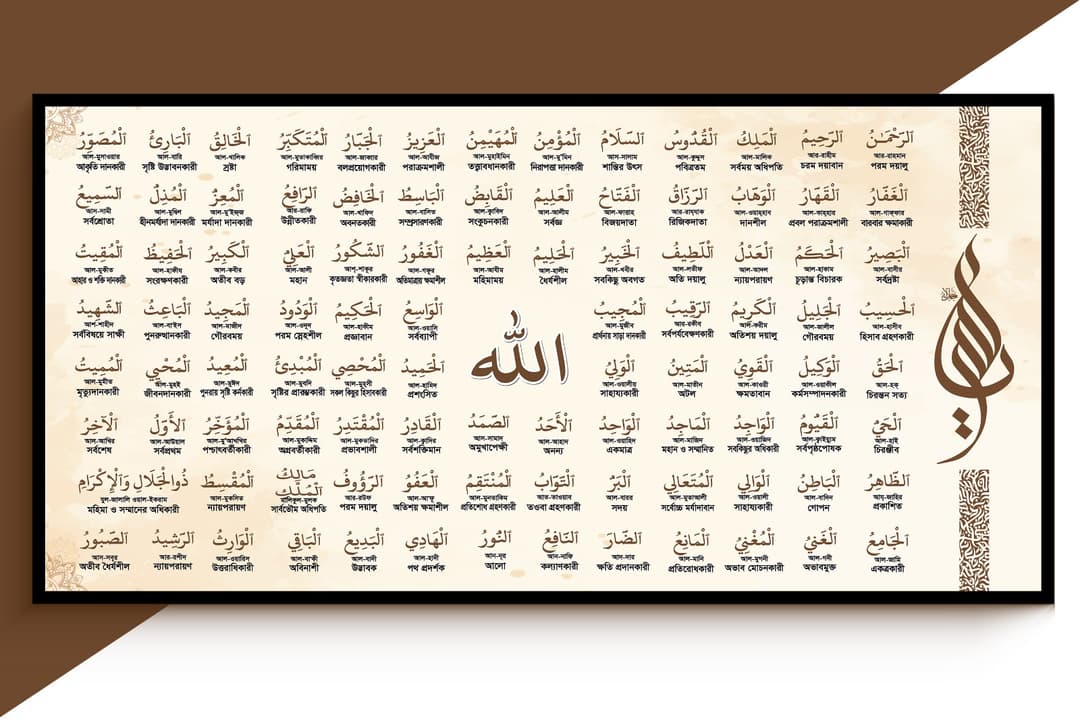 الرَّحْمَٰنُ الرَّحِيمُ الْمَلِكُ الْقُدُّوسُ السَّلَامُ الْمُؤْمِنُ الْمُهَيْمِنُ الْعَزِيزُ الْجَبَّارُ الْمُتَكَبِّرُ الْخَالِقُ الْبَارِئُ الْمُصَوِّرُ
আর-রাহমান আর-রাহীম আল-মালিক আল-কুদ্দুস আস-সালাম আল-মু'মিন আল-মুহাইমিন আল-আযীজ আল-জাব্বার আল-মুতাকাব্বির আল-খালিক আল-বারি আল-মুসাওয়ার
পরম দয়ালু চরম দয়াবান সর্বময় অধিপতি পবিত্রতম শান্তির উৎস নিরাপত্তা দানকারী তত্ত্বাবধানকারী পরাক্রমশালী বলপ্রয়োগকারী গরিমাময় স্রষ্টা সৃষ্টি উদ্ভাবনকারী আকৃতি দানকারী
الْغَفَّارُ الْقَهَّارُ الْوَهَّابُ الرَّزَّاقُ الْفَتَّاحُ الْعَلِيمُ الْقَابِضُ الْبَاسِطُ الْخَافِضُ الرَّافِعُ الْمُعِزُّ الْمُذِلُّ السَّمِيعُ
আল-গাফ্ফার আল-কাহ্হার আল-ওয়াহ্হাব আর-রাযযাক আল-ফাত্তাহ আল-আলীম আল-ক্বাবিদ আল-বাসিত আল-খাফিদ আর-রাফি আল-মু'ইজ্জ আল-মুদ্বিল আস-সামী
বারবার ক্ষমাকারী প্রবল পরাক্রমশালী দানশীল রিজিকদাতা বিজয়দাতা সর্বজ্ঞ সংকুচনকারী সম্প্রসারণকারী অবনতকারী উন্নীতকারী মর্যাদা দানকারী হীনমর্যাদা দানকারী সর্বশ্রোতা
الْبَصِيرُ الْحَكَمُ الْعَدْلُ اللَّطِيفُ الْخَبِيرُ الْحَلِيمُ الْعَظِيمُ الْغَفُورُ الشَّكُورُ الْعَلِيُّ الْكَبِيرُ الْحَفِيظُ الْمُقِيتُ
আল-বাসীর আল-হাকাম আল-আদল আল-লতীফ আল-খবীর আল-হালীম আল-আযীম আল-গফুর আশ্-শাকুর আল-আলী আল-কবীর আল-হাফীয আল-মুকীত
সর্বদ্রষ্টা চূড়ান্ত বিচারক ন্যায়পরায়ণ অতি দয়ালু সবকিছু অবগত ধৈর্যশীল মহিমাময় অতিমাত্রায় ক্ষমাশীল কৃতজ্ঞতা স্বীকারকারী মহান অতীব বড় সংরক্ষণকারী আহার ও শক্তি দানকারী
الْحَسِيبُ الْجَلِيلُ الْكَرِيمُ الرَّقِيبُ الْمُجِيبُ الْوَاسِعُ الْحَكِيمُ الْوَدُودُ الْمَجِيدُ الْبَاعِثُ الشَّهِيدُ
আল-হাসীব আল-জালীল আল-করীম আর-রকীব আল-মুজীব আল-ওয়াসি আল-হাকীম আল-ওদুদ আল-মাজীদ আল-বাইদ আশ-শাহীদ
হিসাব গ্রহণকারী গৌরবময় অতিশয় দয়ালু সর্বপর্যবেক্ষণকারী প্রার্থনায় সাড়া দানকারী সর্বব্যাপী প্রজ্ঞাবান পরম স্নেহশীল গৌরবময় পুনরুত্থানকারী সর্ববিষয়ে সাক্ষী
الله
الْحَقُّ الْوَكِيلُ الْقَوِيُّ الْمَتِينُ الْوَلِيُّ الْحَمِيدُ الْمُحْصِي الْمُبْدِئُ الْمُعِيدُ الْمُحْيِي الْمُمِيتُ
আল-হক্ব আল-ওয়াকীল আল-কাওয়ী আল-মাতীন আল-ওয়ালীয় আল-হামিদ আল-মুহসী আল-মুবদি আল-মুঈদ আল-মুহই আল-মুমীত
চিরন্তন সত্য কর্মসম্পাদনকারী ক্ষমতাবান অটল সাহায্যকারী প্রশংসিত সকল কিছুর হিসাবকারী সৃষ্টির প্রারম্ভকারী পুনরায় সৃষ্টি কর্তনকারী জীবনদানকারী মৃত্যুদানকারী
الْحَيُّ الْقَيُّومُ الْوَاجِدُ الْمَاجِدُ الْوَاحِدُ الْأَحَدُ الصَّمَدُ الْقَادِرُ الْمُقْتَدِرُ الْمُقَدِّمُ الْمُؤَخِّرُ الْأَوَّلُ الْآخِرُ
আল-হাই আল-ক্বাইয়্যুম আল-ওয়াজিদ আল-মাজিদ আল-ওয়াহিদ আল-আহাদ আস-সামাদ আল-ক্বাদির আল-মুকতাদির আল-মুকাদ্দিম আল-মু'আখখির আল-আউয়াল আল-আখির
চিরঞ্জীব সর্বপৃষ্ঠপোষক সবকিছুর অধিকারী মহান ও সম্মানিত একমাত্র অনন্য অমুখাপেক্ষী সর্বশক্তিমান প্রভাবশালী অগ্রবর্তীকারী পশ্চাৎবর্তীকারী সর্বপ্রথম সর্বশেষ
الظَّاهِرُ الْبَاطِنُ الْوَالِي الْمُتَعَالِي الْبَرُّ التَّوَّابُ الْمُنْتَقِمُ الْعَفُوُّ الرَّؤُوفُ مَالِكُ الْمُلْكِ الْمُقْسِطُ ذُو الْجَلَالِ وَالْإِكْرَامِ
আয্-জাহির আল-বাদিন আল-ওয়ালী আল-মুতাআলী আল-বারর আত-তাওয়াব আল-মুনতাকিম আল-আফু আর-রউফ মালিকুল-মুলক আল-মুকসিত যুল-জালালি ওয়াল-ইকরাম
প্রকাশিত গোপন সাহায্যকারী সর্বোচ্চ মর্যাদাবান সদয় তওবা গ্রহণকারী প্রতিশোধ গ্রহণকারী অতিশয় ক্ষমাশীল পরম দয়ালু সার্বভৌম অধিপতি ন্যায়পরায়ণ মহিমা ও সম্মানের অধিকারী
الْجَامِعُ الْغَنِيُّ الْمُغْنِيُّ الْمَانِعُ الضَّارَ النَّافِعُ النُّورُ الْهَادِي الْبَدِيعُ الْبَاقِي الْوَارِثُ الرَّشِيدُ الصَّبُورُ
আল-জামি আল-গনী আল-মুগনী আল-মানি আদ-দার আন-নাফি আন-নূর আল-হাদী আল-বাদী আল-বাক্বী আল-ওয়ারিস আর-রশীদ আস-সবুর
একত্রকারী অভাবমুক্ত অভাব মোচনকারী প্রতিরোধকারী ক্ষতি প্রদানকারী কল্যাণকারী আলো পথ প্রদর্শক উদ্ভাবক অবিনাশী উত্তরাধিকারী ন্যায়পরায়ণ অতীব ধৈর্যশীল